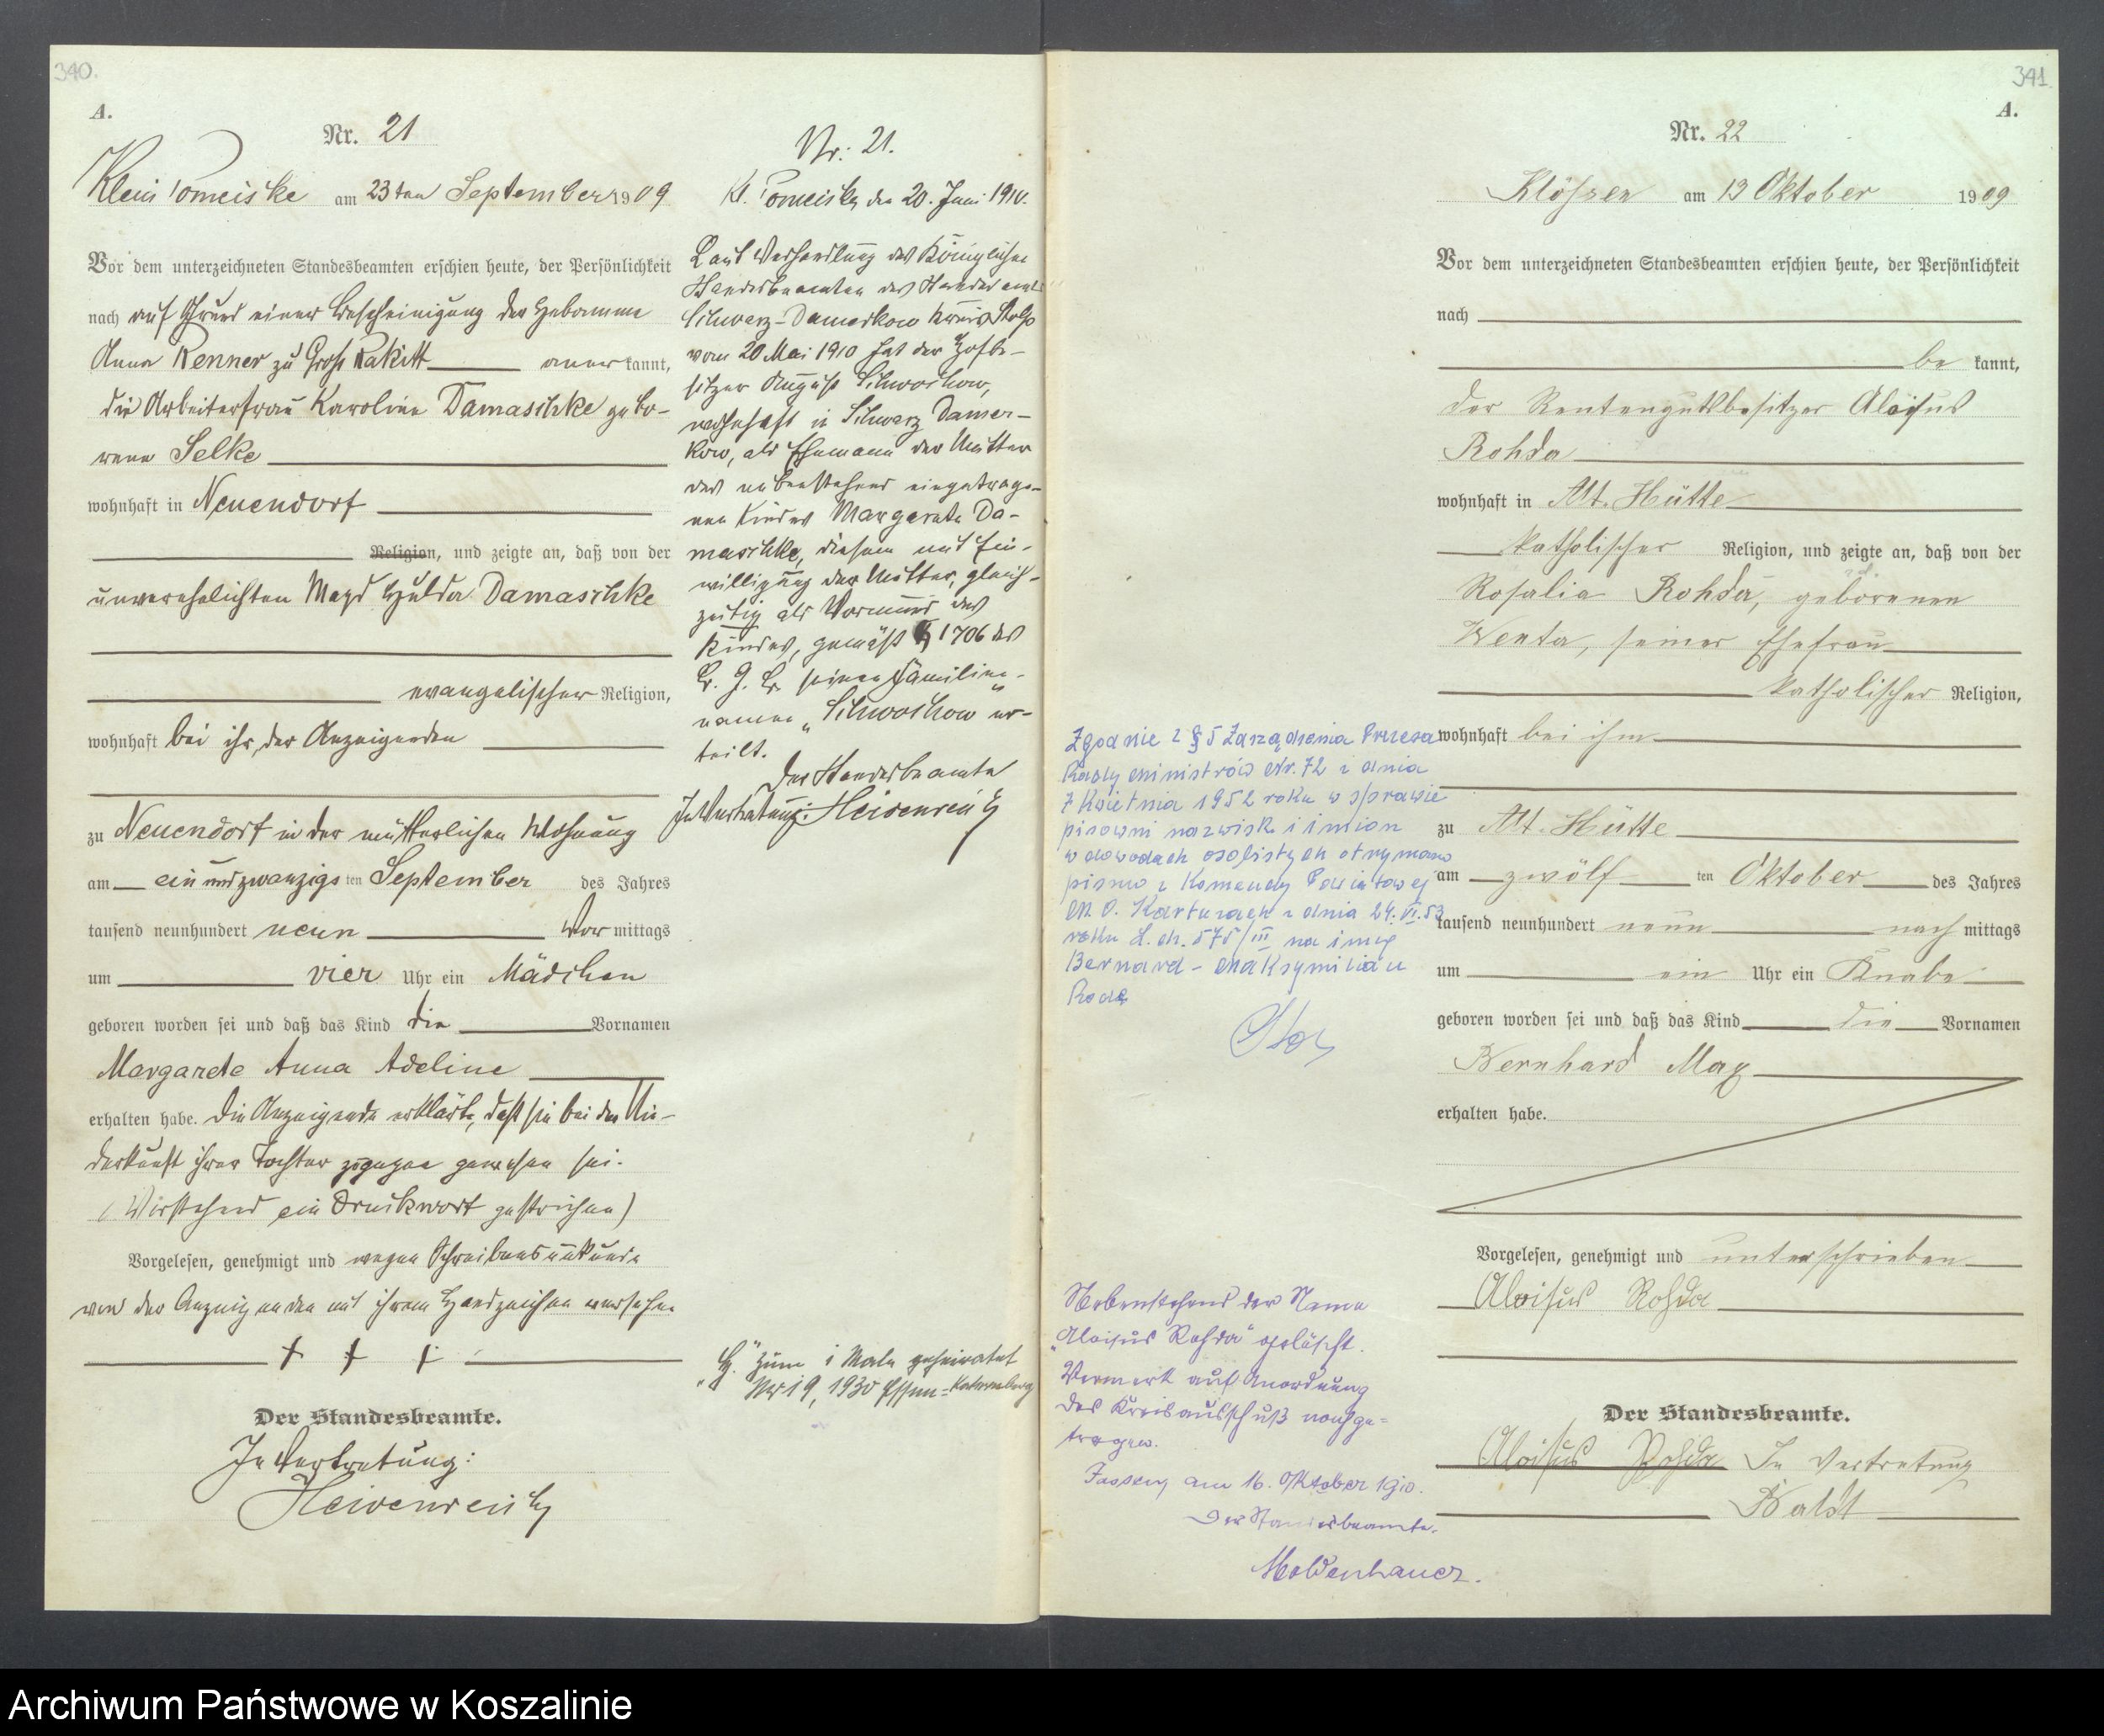 340.
A.
Nr. 21
Klein Pomeiske am 23ten September 1909
Vor dem unterzeichneten Standesbeamten erschien heute, der Persönlichkeit
nach auf Grund einer Bescheinigung der Hebamme
Anna Renner zu Groß Rakitt anerkannt,
die Arbeiterfrau Karoline Damaschke gebo-
rene Selke
wohnhaft in Neuendorf
Religion, und zeigte an, daß von der
unverehelichten Magd Hulda Damaschke
evangelischer Religion,
wohnhaft bei ihr, der Anzeigenden
zu Neuendorf in der mütterlichen Wohnung
am ein und zwanzigsten September des Jahres
tausend neunhundert neun Vormittags
um vier Uhr ein Mädchen
geboren worden sei und daß das Kind die Vornamen
Margarete Anna Adeline
erhalten habe. Die Anzeigende erklärte, daß sie bei der Nie-
derkunft ihrer Tochter zugegen gewesen sei.
(Vorstehend ein Druckwort gestrichen)
Vorgelesen, genehmigt und wegen Schreibensunkunde
von der Anzeigenden mit ihrem Handzeichen versehen
+ + +
Der Standesbeamte.
In Vertretung:
Heidenreich
Nr. 21.
Kl. Pomeiske, den 20. Juni 1910.
Laut Verhandlung des Königlichen
Standesbeamten des Standesamts
Schwarz-Damerkow Kreis Stolp
vom 20 Mai 1910 hat der Hofbe-
sitzer August Schwochow,
wohnhaft in Schwarz Damer-
kow, als Ehemann der Mutter
des nebenstehend eingetrage-
nen Kindes Margarete Da-
maschke, diesem mit Ein-
willigung der Mutter, gleich-
zeitig als Vormund des
Kindes, gemäß § 1706 des
B. G. B. seinen Familien-
namen „Schwochow" er-
teilt.
Der Standesbeamte
In Vertretung: Heidenreich
„H." zum 1 Male geheiratet
Nr 19, 1930 Essen-Katernberg
341.
A.
Nr. 22
Klössen am 13 Oktober 1909
Vor dem unterzeichneten Standesbeamten erschien heute, der Persönlichkeit
nach
bekannt,
der Rentengutsbesitzer Aloisius
Rohda
wohnhaft in Alt. Hütte
katholischer Religion, und zeigte an, daß von der
Rosalia Rohda, geborenen
Wenta, seiner Ehefrau
katholischer Religion,
wohnhaft bei ihm
zu Alt. Hütte
am zwölften Oktober des Jahres
tausend neunhundert neun nachmittags
um ein Uhr ein Knabe
geboren worden sei und daß das Kind die Vornamen
Bernhard Max
erhalten habe.
Vorgelesen, genehmigt und unterschrieben
Aloisius Rohda
Der Standesbeamte.
Aloisius Rohda In Vertretung
Baldt
Zgodnie z § 5 Zarządzenia Prezesa
Rady Ministrów Nr. 72 z dnia
7 kwietnia 1952 roku w sprawie
pisowni nazwisk i imion
w dowodach osobistych otrzymano
pismo z Komendy Powiatowej
M. O. Kartuzach z dnia 24. VI. 53
roku L. dz. 575/III na imię
Bernard - Maksymilian
Roda
Nebenstehend der Name
„Aloisius Rohda" gelöscht.
Vermerk auf Anordnung
des Kreisausschuß nachge-
tragen.
Jassen, am 16. Oktober 1910.
Der Standesbeamte.
Moldenhauer.
Archiwum Państwowe w Koszalinie